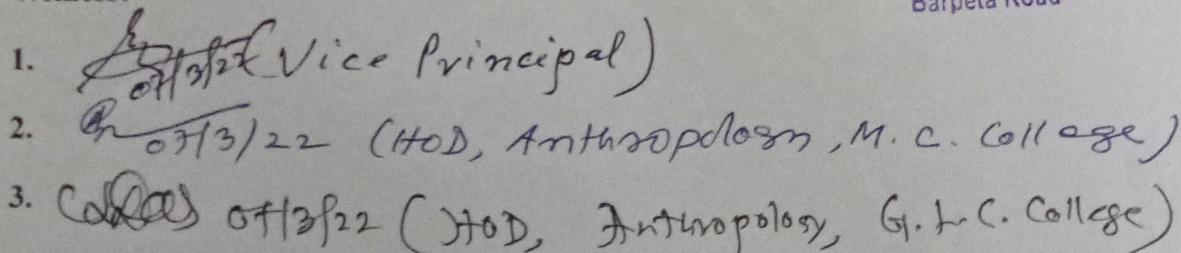 Barpeta Road
1. 07/3/22 (Vice Principal)
2. 07/3/22 (HOD, Anthropology, M. C. College)
3. 07/3/22 (HOD, Anthropology, G. L. C. College)